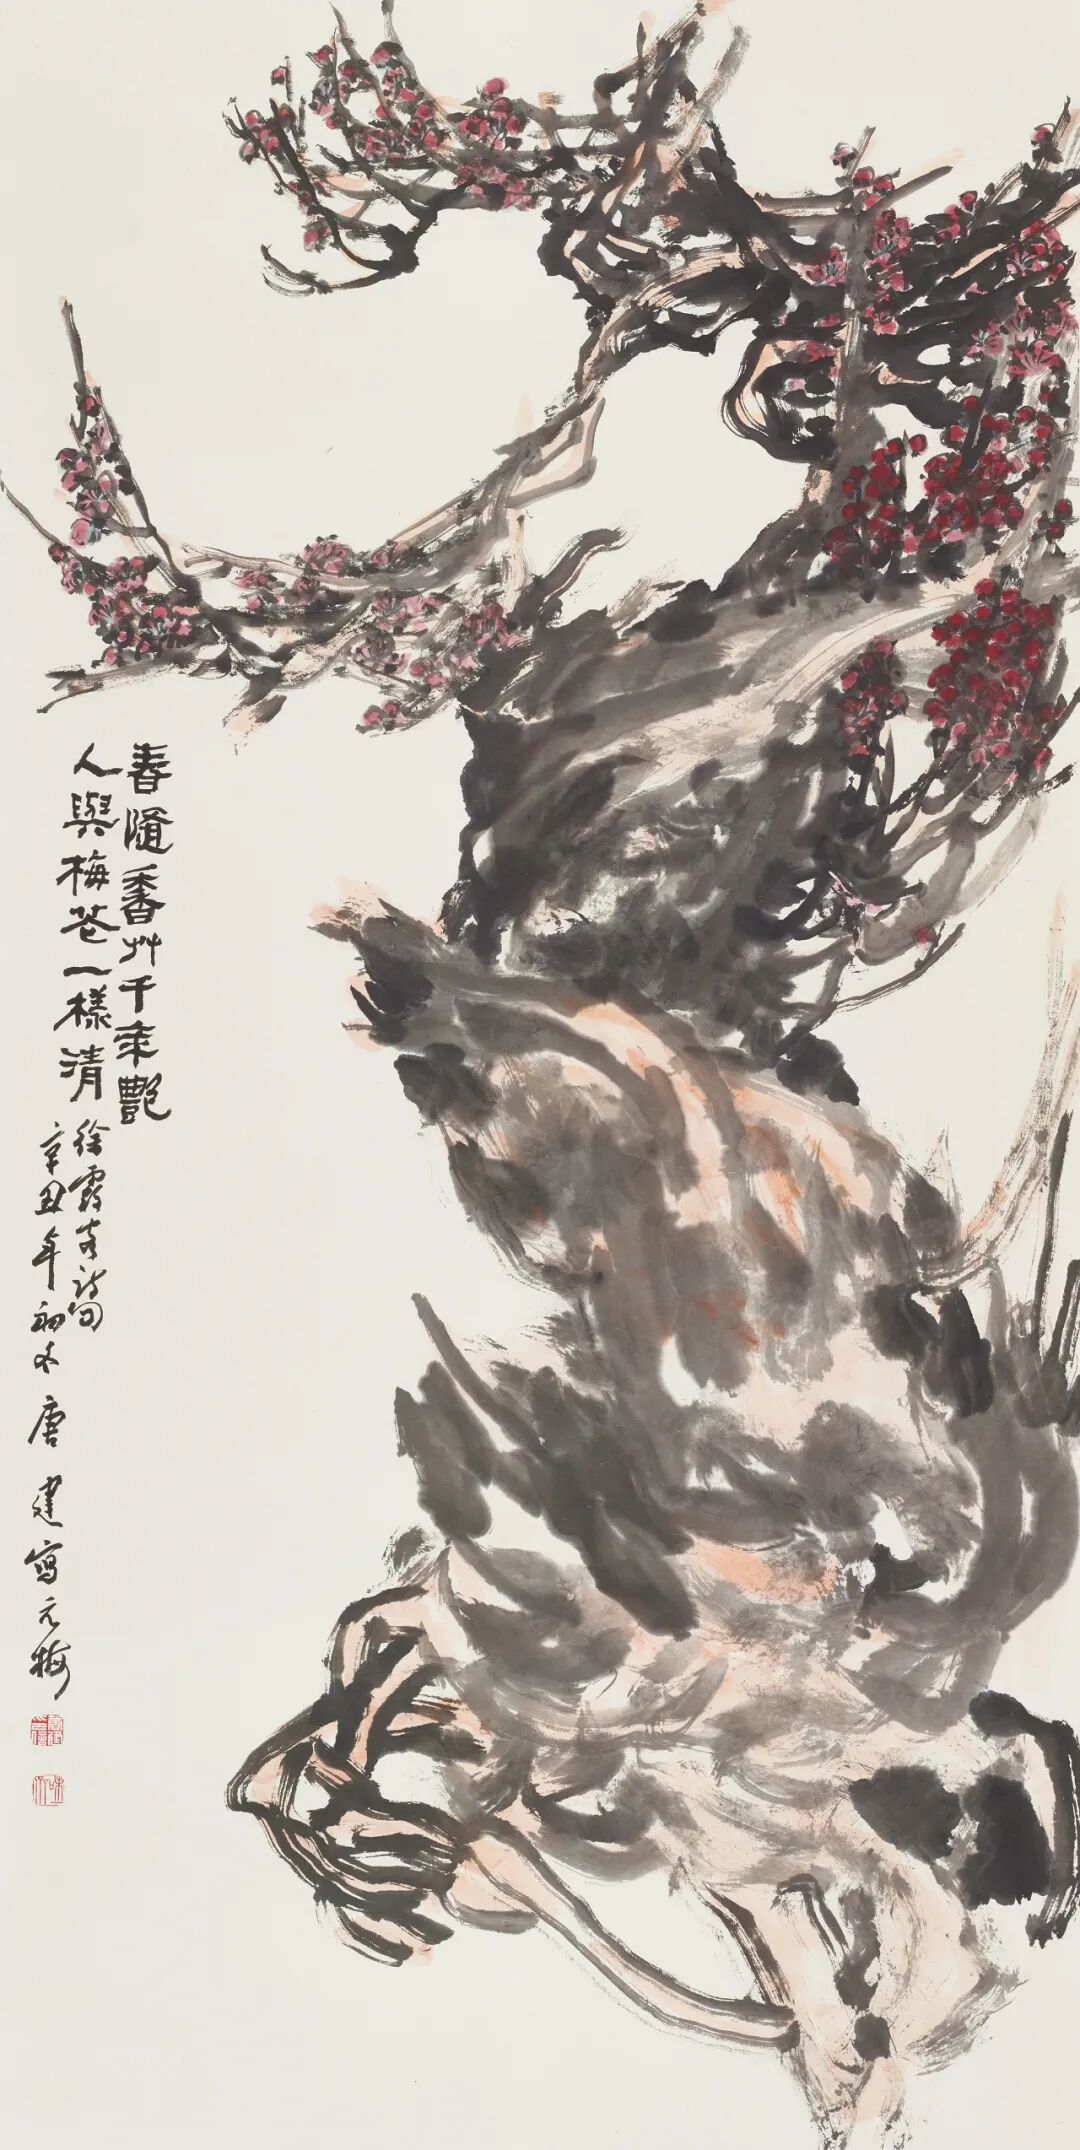 春随香艸千年艷
人與梅花一樣清
徐霞客詩句
辛丑年初冬唐建寫元梅